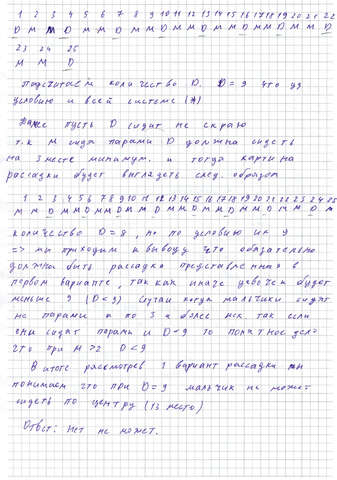 1 2 3 4 5 6 7 8 9 10 11 12 13 14 15 16 17 18 19 20 21 22
D M M D M M D M M D M M D M M D M M D M M D
23 24 25
M M D
Подсчитаем количество D. D = 9 что уд
условию и всей системе (*)
Далее пусть D сидит не скраю
т.к М сидя парами D должна сидеть
на 3 месте минимум. и тогда картина
рассадки будет выглядеть след. образом
1 2 3 4 5 6 7 8 9 10 11 12 13 14 15 16 17 18 19 20 21 22 23 24 25
M M D M M D M M D M M D M M D M M D M M D M M D M
количество D = 8, но по условию их 9
=> мы приходим к выводу что обязательно
должна быть рассадка представленная в
первом варианте, так как иначе девочек будет
меньше 9 (D < 9) Случаи когда мальчики сидят
не парами а по 3 и более нет так если
они сидят парами и D = 9 то понятное дело
что при M > 2 D < 9
В итоге рассмотрев 1 вариант рассадки мы
понимаем что при D = 9 мальчик не может
сидеть по центру (13 место)
Ответ: Нет не может.